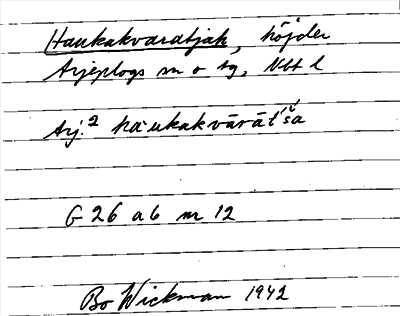 Haukakvaratjah, höjder
Arjeplogs sn o tg, Nbt l
Arj.2 hàukakvārāt'š́a
G 26 a b nr 12
Bo Wickman 1942